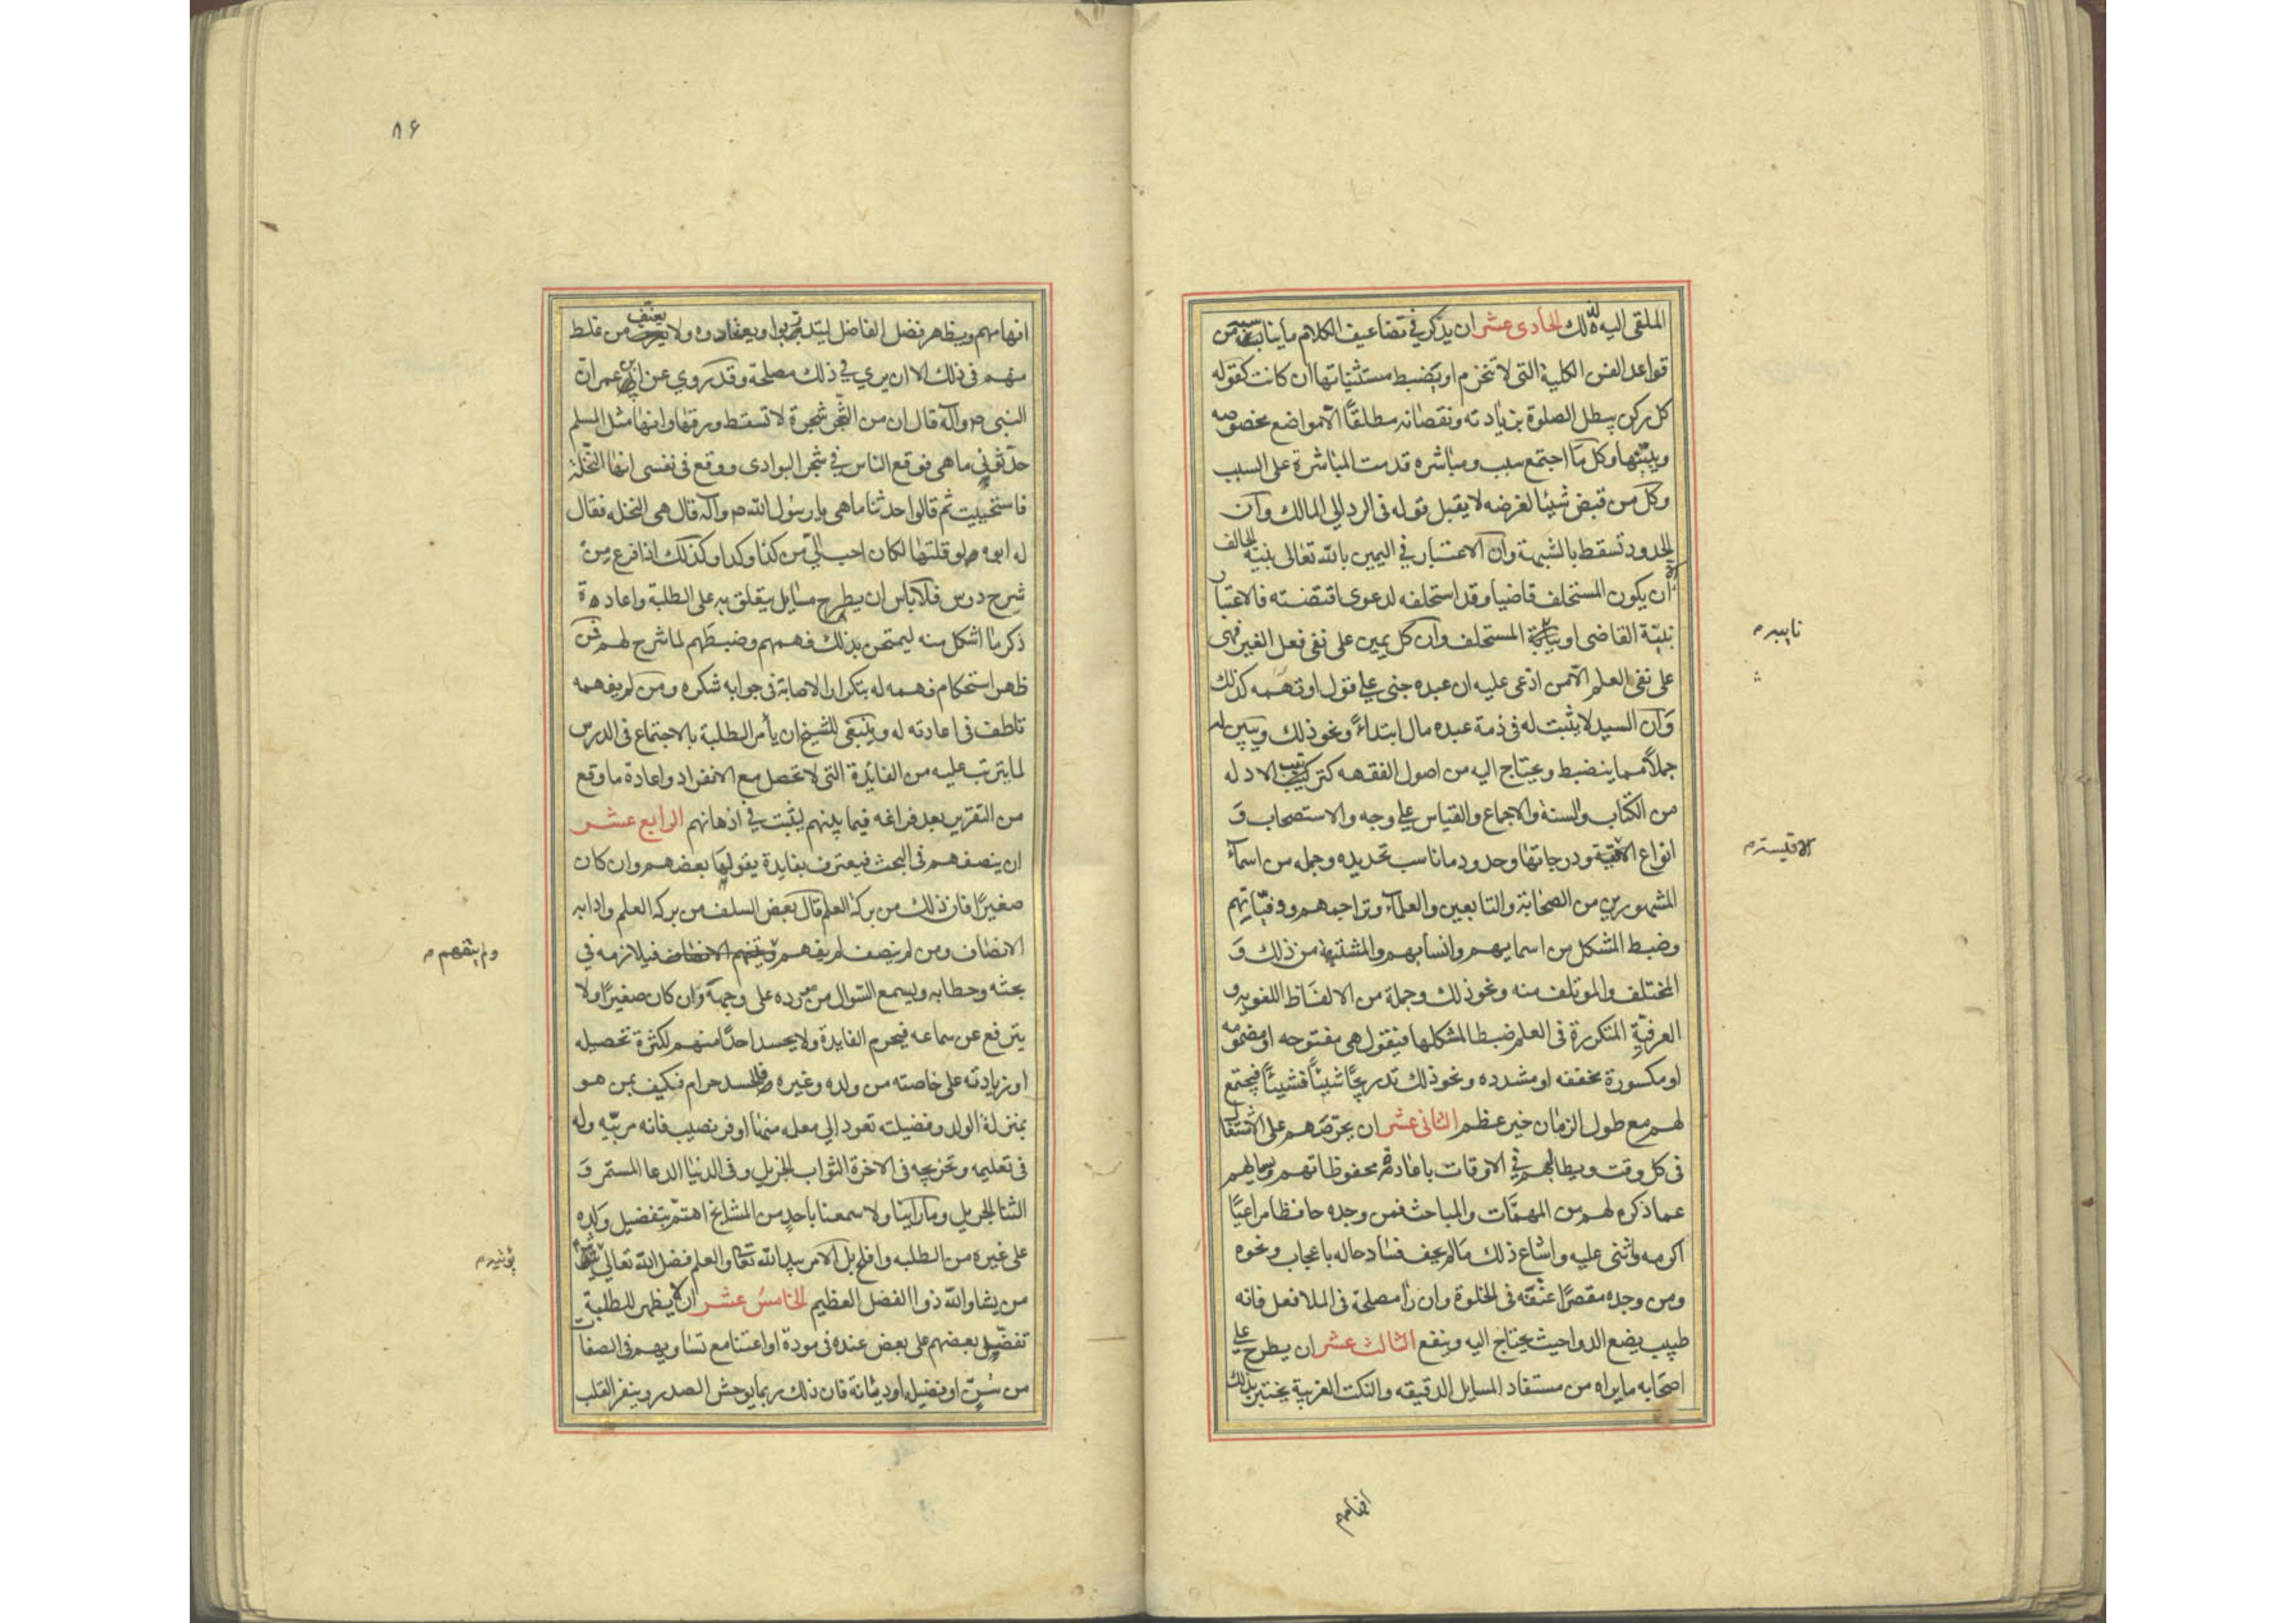 الملقى اليه لذلك الحادى عشر ان يذكر في تضاعيف الكلام ما يناسبه من
قواعد الفن الكلية التى لا تنخرم او يضبط مستثنياتها ان كانت كقوله
كل ركن يبطل الصلوة بزيادته ونقصانه مطلقًا الا مواضع مخصوصه
ويبيّنها وكل ما اجتمع سبب ومباشره قدمت المباشرة على السبب
وكل من قبض شيئا لغرضه لا يقبل قوله فى الرد الى المالك وان
الحدود تسقط بالشبهة وان الاعتبار في اليمين بالله تعالى بنية الحالف
الا ان يكون المستحلف قاضيا وقد استحلفه لدعوى اقتضته فالاعتبار
بنيّة القاضى او المستحلف وان كل يمين على نفى فعل الغير فهى
على نفى العلم الا من ادّعى عليه ان عبده جنى على قول او بهيمه كذلك
وان السيد لا يثبت له فى ذمة عبده مال ابتداءً ونحو ذلك ويبين له
جملاً مما ينضبط ويحتاج اليه من اصول الفقه كترتيب الادله
من الكتاب والسنة والاجماع والقياس على وجه والاستصحاب و
انواع الاقيسة ودرجاتها وحدود ما ناسب تحديده وجمله من اسماء
المشهورين من الصحابة والتابعين والعلماء وتراجمهم ووفياتهم
وضبط المشكل من اسمايهم وانسابهم والمشتبه من ذلك و
المختلف والموتلف منه ونحو ذلك وجملة من الالفاظ اللغويه و
العرفيّة المتكررة فى العلم ضبطا لمشكلها فيقول هى مفتوحه او مضمومه
او مكسورة مخففه او مشدده ونحو ذلك تدريجًا شيئًا فشيئًا فيجتمع
لهم مع طول الزمان خير عظيم الثانى عشر ان يحرّضهم على الاشتغال
فى كل وقت ويطالبهم في الاوقات باعادة محفوظاتهم ويسايلهم
عما ذكره لهم من المهمّات والمباحث فمن وجده حافظا مراعيًا
اكرمه واثنى عليه واشاع ذلك ما لم يخف فساد حاله باعجاب ونحوه
ومن وجده مقصرًا عنّفه فى الخلوة وان راٰ مصلحة فى الملا فعل فانه
طبيب يضع الدوا حيث يحتاج اليه وينفع الثالث عشر ان يطرح على
اصحابه ما يراه من مستفاد المسايل الدقيقه والنكت الغريبة يختبر بذلك
افهامهم
٨٦
افهامهم ويظهر فضل الفاضل ليتدربوا ويعتادوه ولا يعنّف من غلط
منهم فى ذلك الا ان يري في ذلك مصلحة وقد روي عن ابن عمر ان
النبى ص وآله قال ان من الشجر شجرة لا تسقط ورقها وانها مثل المسلم
حدّثونى ما هى فوقع الناس في شجر البوادى ووقع فى نفسى انها النخلة
فاستحييت ثم قالوا حدثنا ماهى يا رسول الله ص وآله قال هى النخله فقال
له ابوه لو قلتها لكان احب الىّ من كذا وكذا وكذلك اذا فرغ من
شرح درس فلا باس ان يطرح مسايل يتعلق به على الطلبة واعادة
ذكر ما اشكل منه ليمتحن بذلك فهمهم وضبطهم لما شرح لهم فمن
ظهر استحكام فهمه له بتكرار الاصابة فى جوابه شكره ومن لم يفهمه
تلطف فى اعادته له وينبغى للشيخ ان يأمر الطلبة بالاجتماع فى الدرس
لما يترتب عليه من الفايدة التى لا تحصل مع الانفراد واعادة ما وقع
من التقرير بعد فراغه فيما بينهم ليثبت في اذهانهم الرابع عشر
ان ينصفهم فى البحث فيعترف بفايدة يقولها بعضهم وان كان
صغيرًا فان ذلك من بركة العلم قال بعض السلف من بركه العلم وادابه
الانصاف ومن لم ينصف لم يفهم ولم يتفهم فيلازمه في
بحثه وخطابه ويسمع السّوال من مورده على وجهه وان كان صغيرًا ولا
يترفع عن سماعه فيحرم الفايدة ولا يحسد احدًا منهم لكثرة تحصيله
او زيادته على خاصته من ولده وغيره فالحسد حرام فكيف بمن هو
بمنزلة الولد وفضيلته تعود الى معلمه منها اوفر نصيب فانه مربّيه وله
فى تعليمه وتخريجه فى الاخرة الثواب الجزيل وفى الدنيا الدعا المستمر و
الثنا الجزيل وما رأينا ولا سمعنا باحدٍ من المشايخ اهتم بتفضيل ولده
على غيره من الطلبه وافلح بل الامر بيد الله تعالى والعلم فضل الله تعالى يؤتيه
من يشا والله ذوا الفضل العظيم الخامس عشر ان لا يظهر للطلبة
تفضيل بعضهم على بعض عنده فى مودة او اعتنا مع تساويهم فى الصفات
من سنّ او فضيلة او ديانة فان ذلك ربما يوحش الصدر وينفر القلب